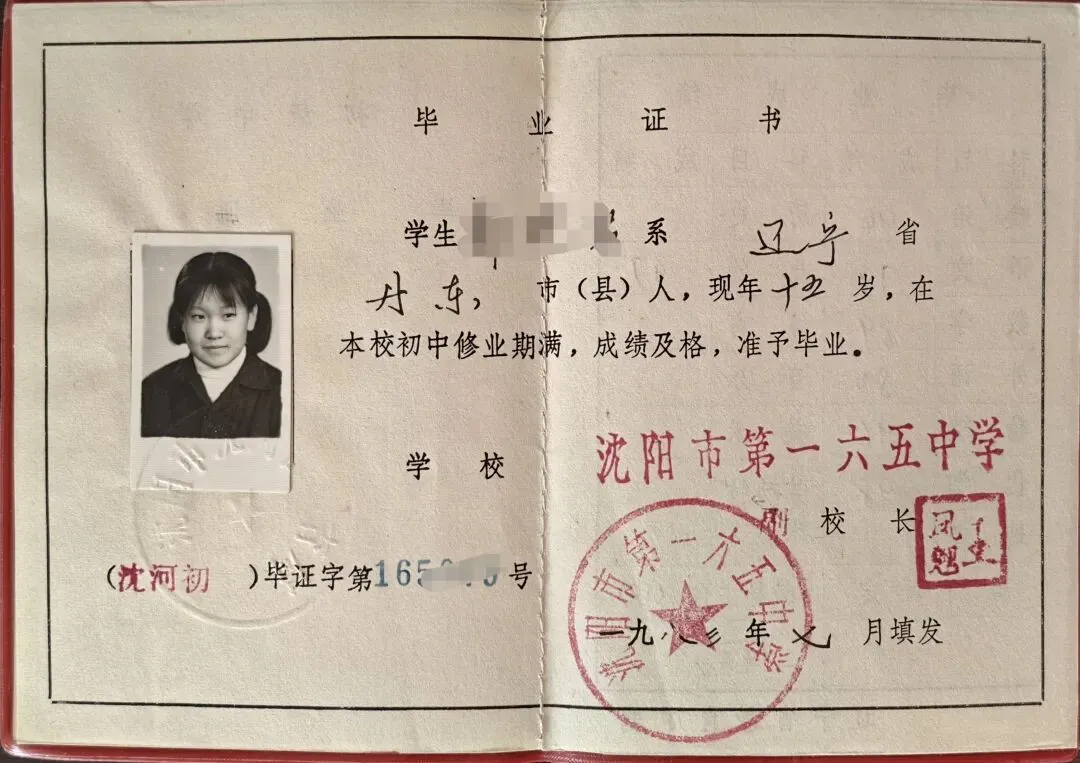 毕业证书
学生 系 辽宁 省
丹东 市（县）人，现年 十五 岁，在
本校初中修业期满，成绩及格，准予毕业。
学校 沈阳市第一六五中学
副校长
（沈河初）毕证字第165 号
沈阳市第一六五中学
一九八三年 七 月填发